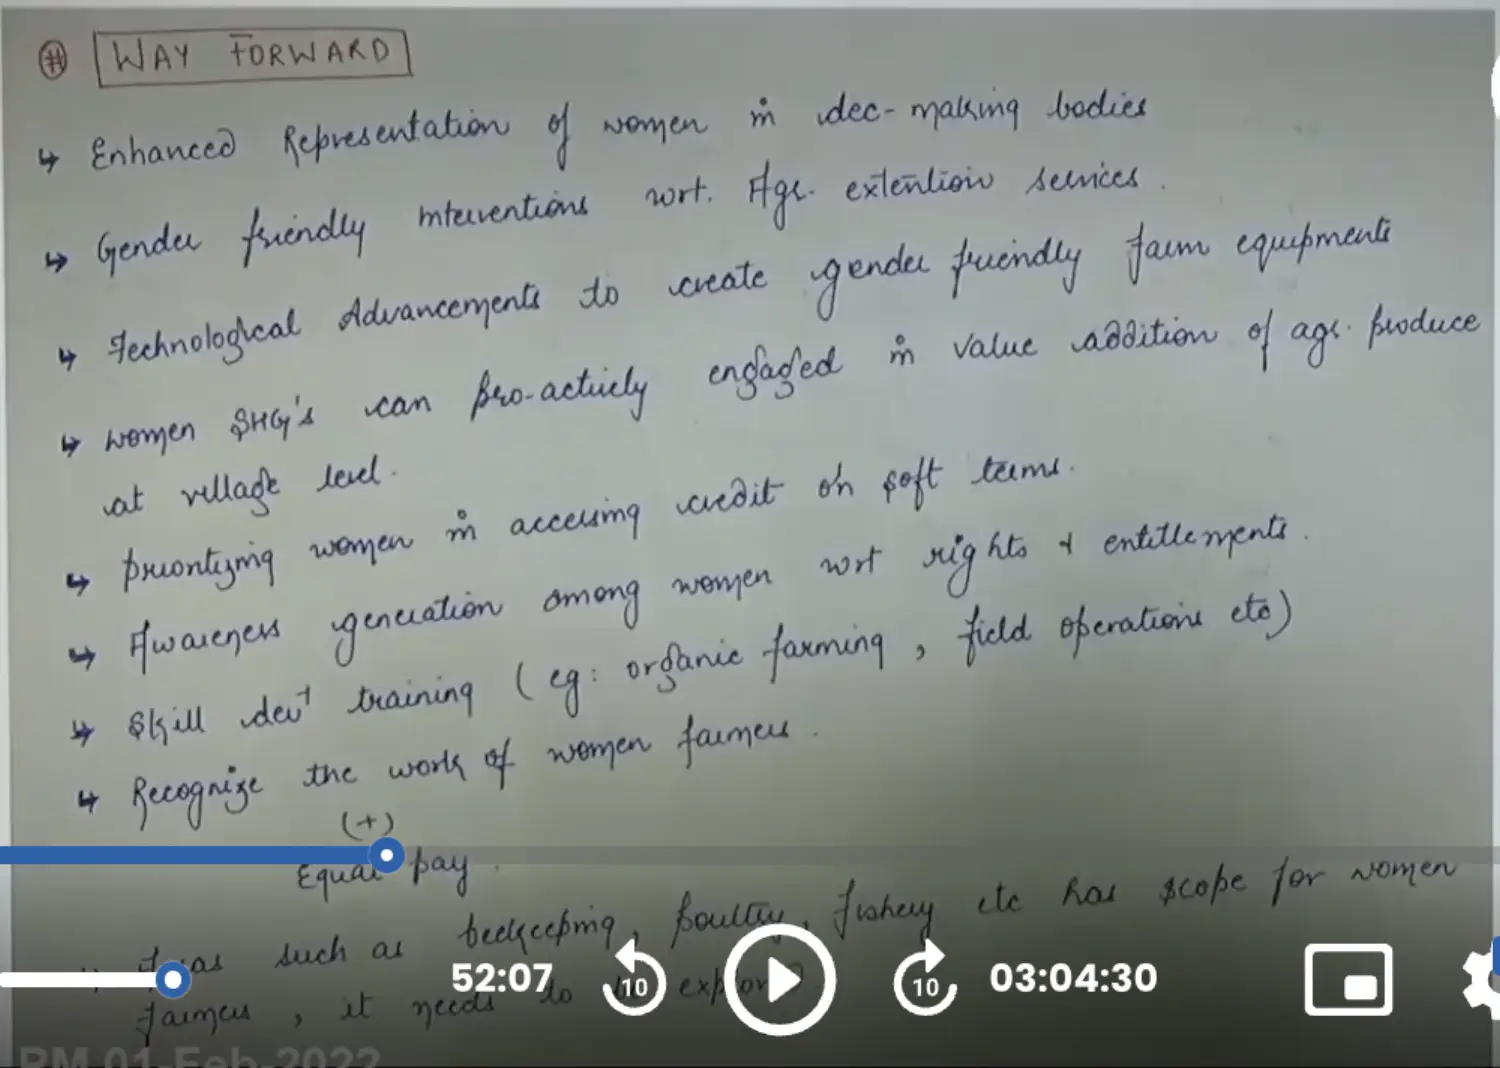 # WAY FORWARD
↳ Enhanced Representation of women in dec-making bodies
↳ Gender friendly interventions wrt. Agr. extention services.
↳ Technological Advancements to create gender friendly farm equipments
↳ women SHG's can pro-actively engaged in value addition of agr. produce
at village level.
↳ prioritizing women in accessing credit on soft terms.
↳ Awareness generation among women wrt rights & entitlements.
↳ Skill devt training (eg: organic farming, field operations etc)
↳ Recognize the work of women farmers.
(+)
Equal pay.
such as beekeeping, poultry, fishery etc has scope for women
farmers, it needs to be explored.
52:07 10 10 03:04:30
PM 01-Feb-2022